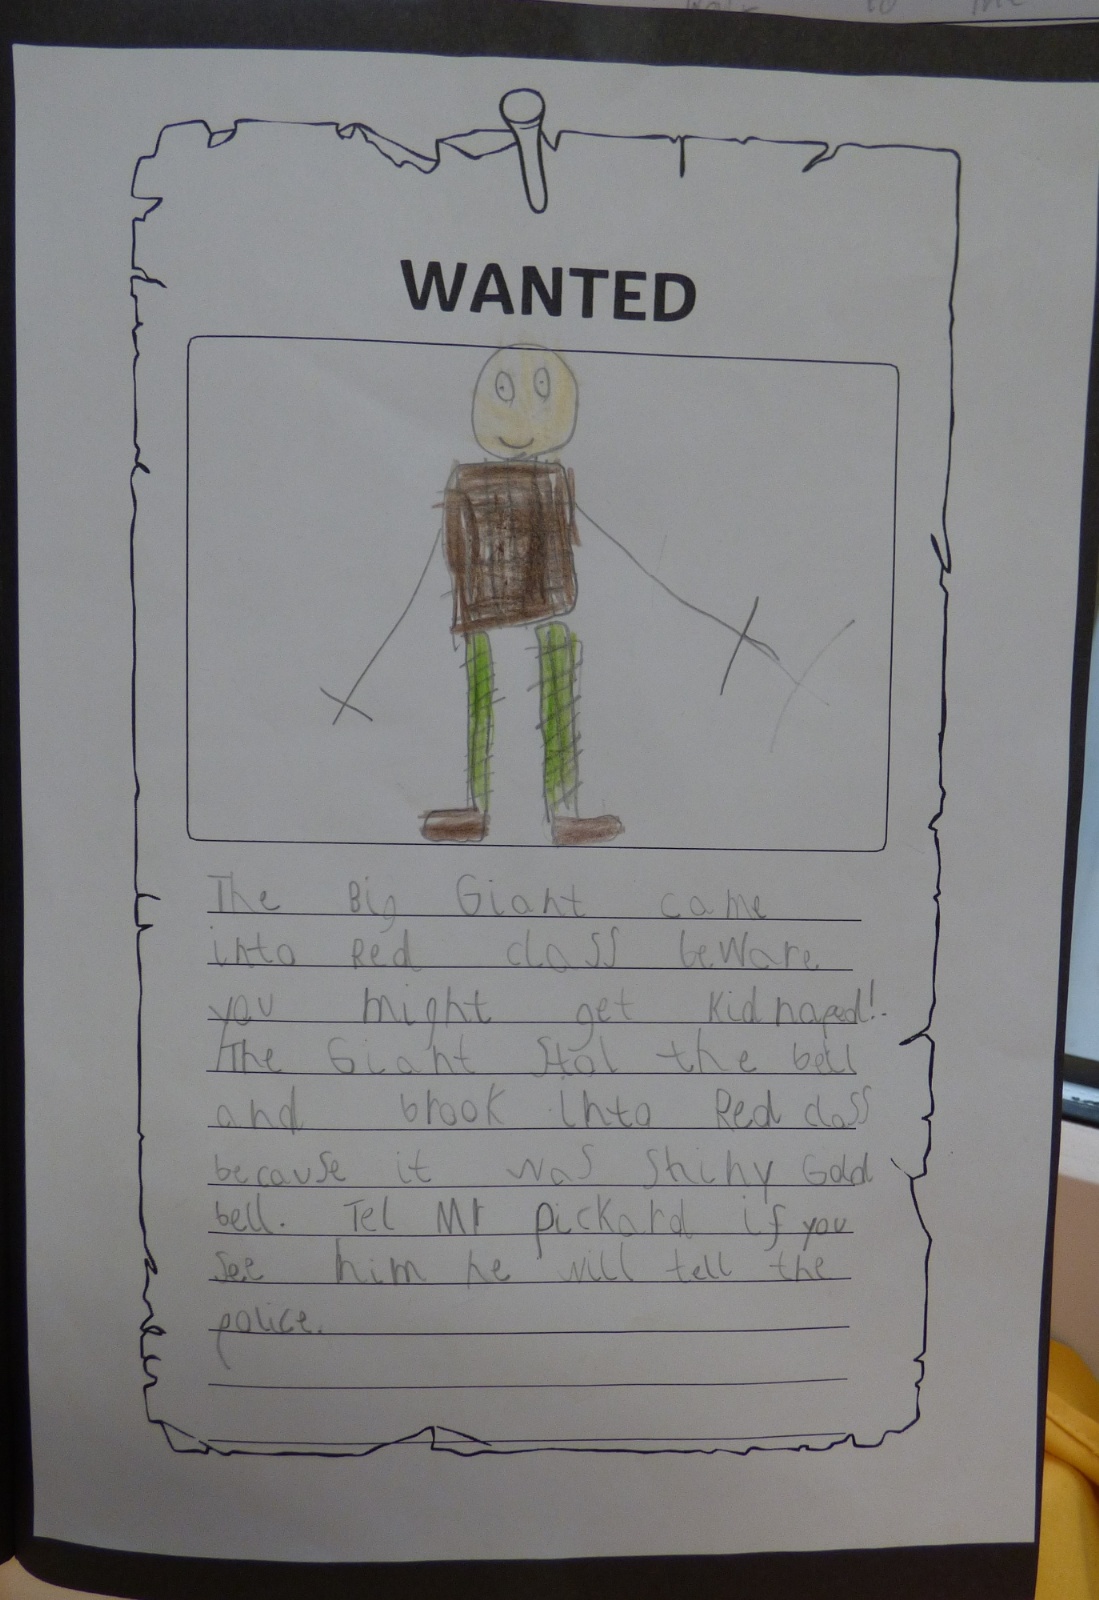 WANTED
The Big Giant came
into Red class beware
you might get kidnaped!.
The Giant Stol the bell
and brook into Red class
because it was Shiny Gold
bell. Tel Mr pickard if you
see him he will tell the
police.